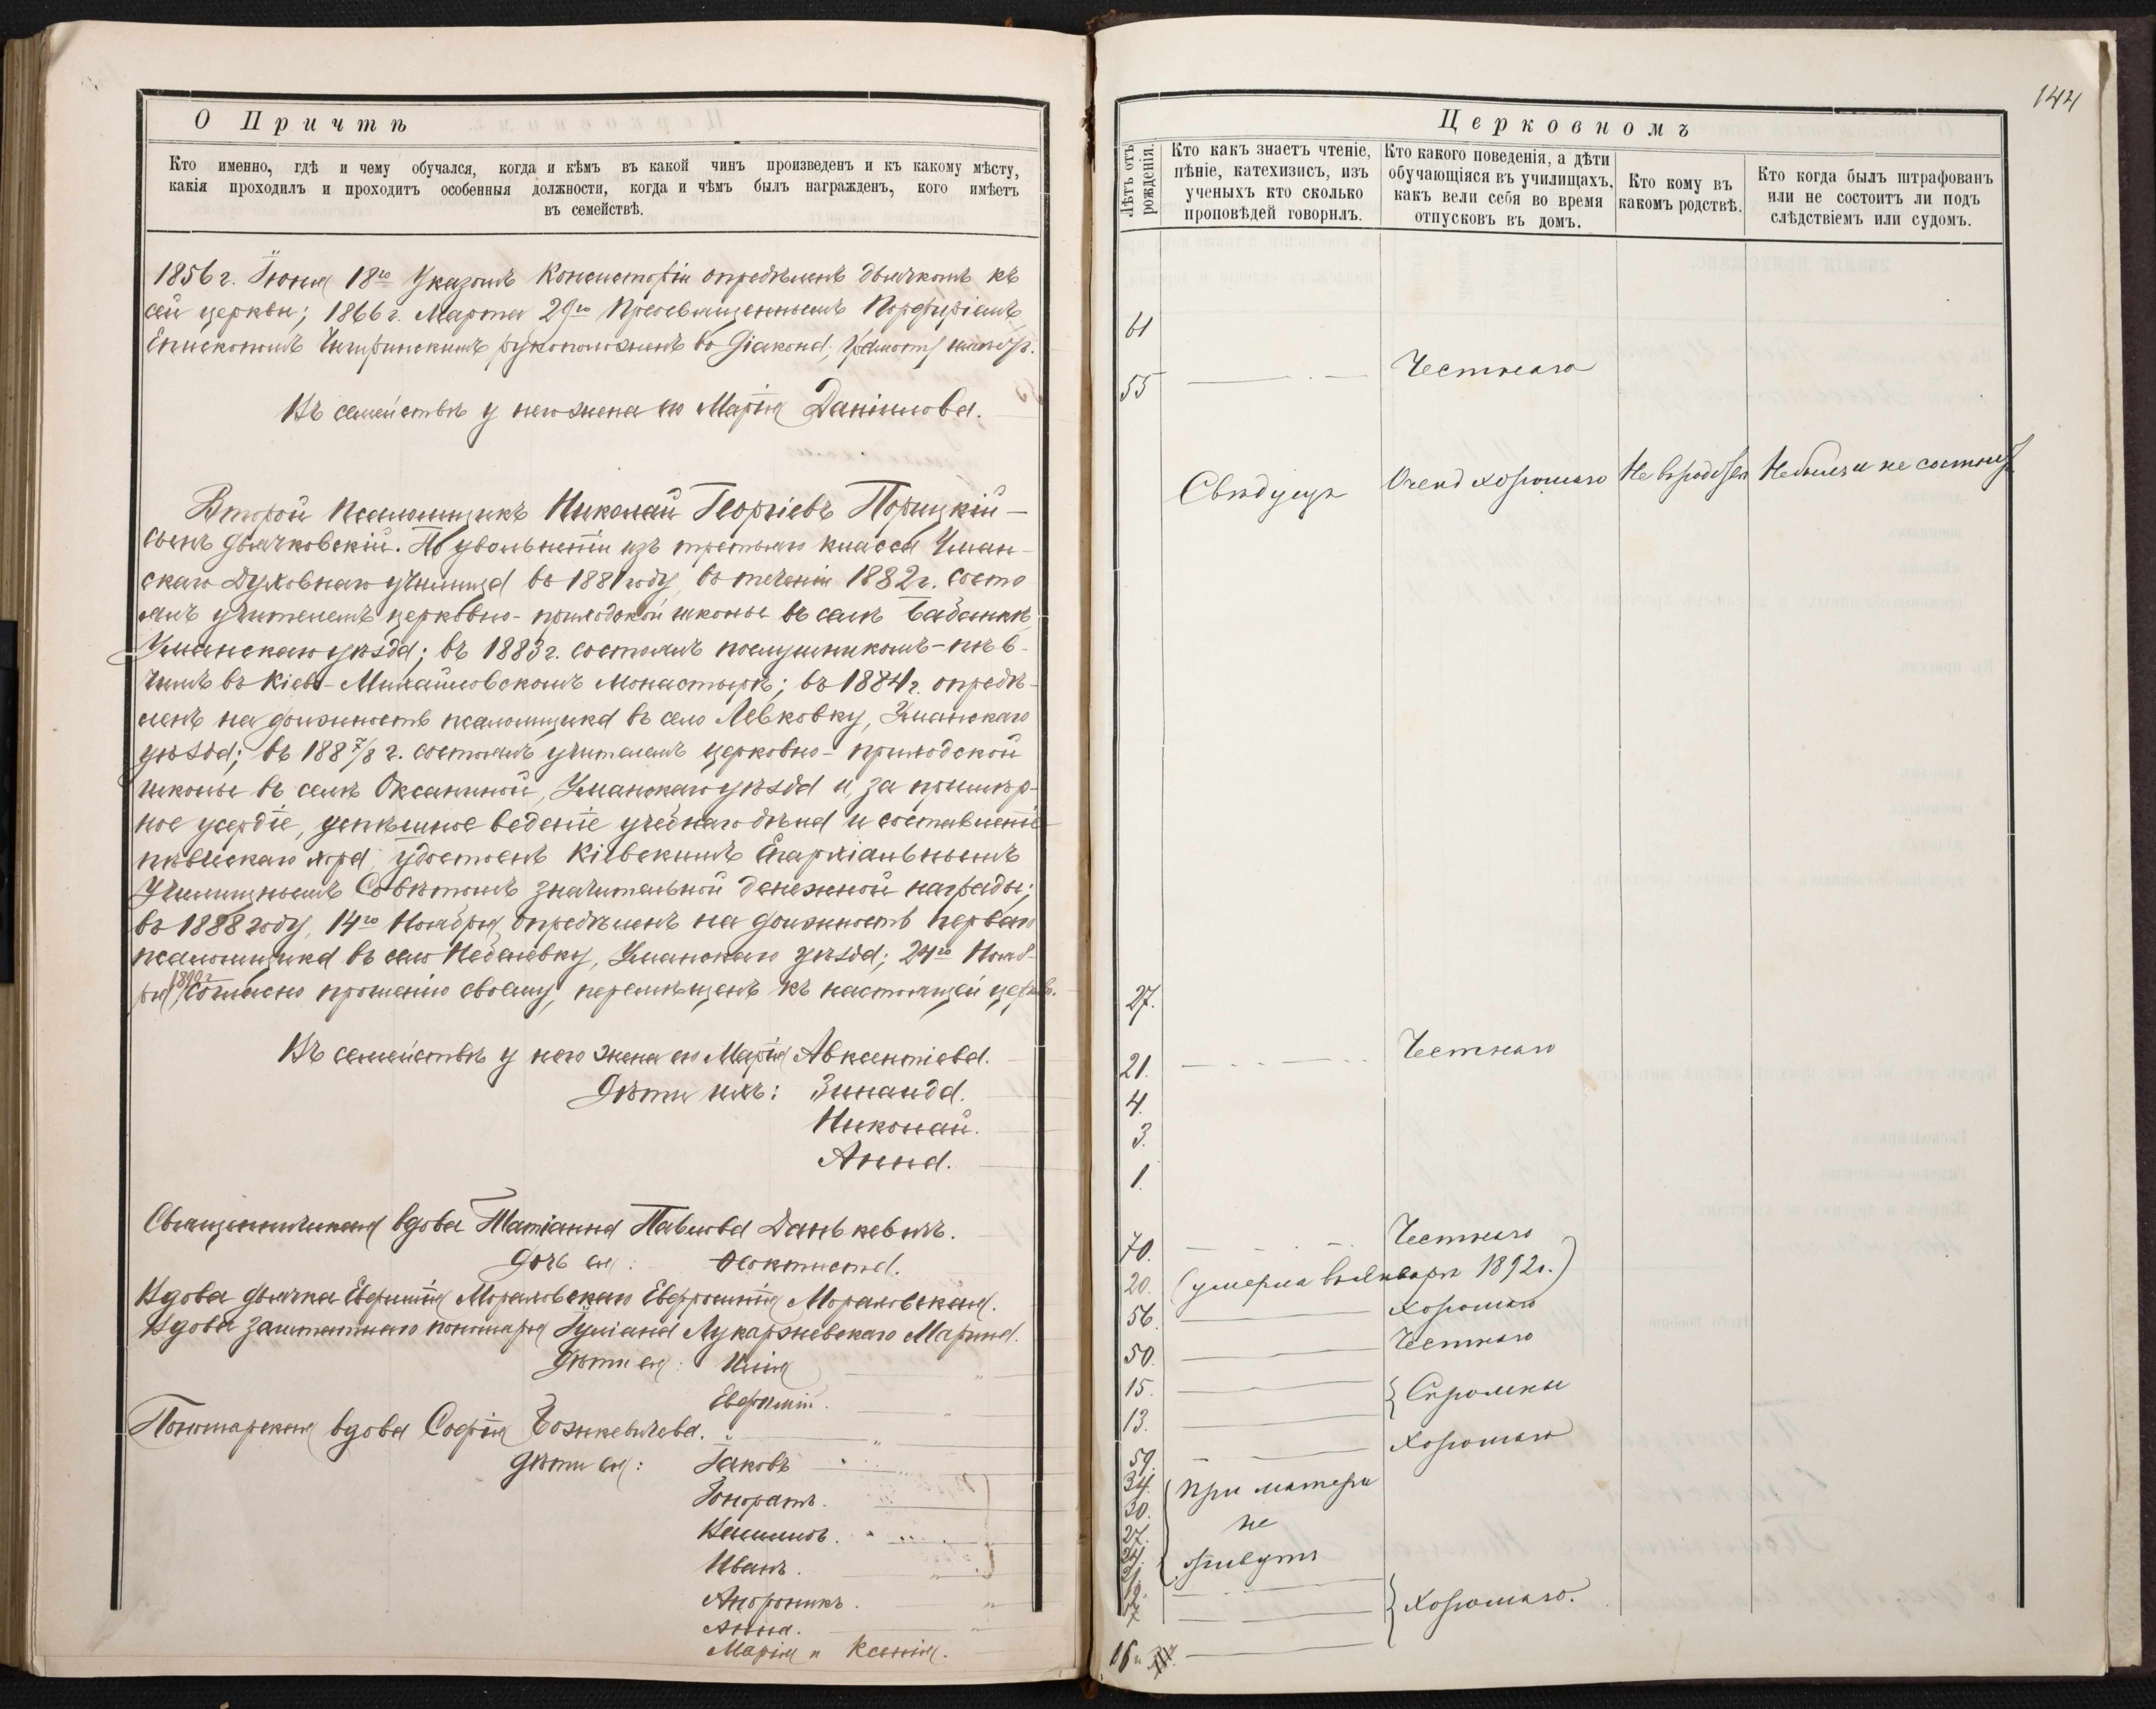 О Причтѣ
Кто именно, гдѣ и чему обучался, когда и кѣмъ въ какой чинъ произведенъ и къ какому мѣсту,
какія проходилъ и проходитъ особенныя должности, когда и чѣмъ былъ награжденъ, кого имѣетъ
въ семействѣ.
1856 г. Іюня 18го Указомъ Консисторіи опредѣленъ дьячкомъ къ
сей церкви; 1866 г. Марта 29го Преосвященнымъ Порфиріемъ
Епископомъ Чигиринскимъ рукоположенъ во Діакона, грамоту имѣетъ.
Въ семействѣ у него жена его Марія Даніилова.
Второй Псаломщикъ Николай Георгіевъ Порицкій –
сынъ дьячковскій. По увольненіи изъ третьяго класса Уман-
скаго Духовнаго училища въ 1881 году, въ теченіи 1882 г. состо
ялъ учителемъ церковно-приходской школы въ селѣ Бабанкѣ,
Уманскаго уѣзда; въ 1883 г. состоялъ послушникомъ-пѣв-
чимъ въ Кіево-Михайловскомъ Монастырѣ; въ 1884 г. опредѣ-
ленъ на должность псаломщика въ село Левковку, Уманскаго
уѣзда; въ 1887/8 г. состоялъ учителемъ церковно-приходской
школы въ селѣ Оксаниной, Уманскаго уѣзда и, за примѣр-
ное усердіе, успѣшное веденіе учебнаго дѣла и составленіе
пѣвческаго хора, удостоенъ Кіевскимъ Епархіальнымъ
Училищнымъ Совѣтомъ значительной денежной награды;
въ 1888 году, 14го Ноября, опредѣленъ на должность перваго
псаломщика въ село Небелевку, Уманскаго уѣзда; 24го Нояб-
ря 1890 г. согласно прошенію своему, перемѣщенъ къ настоящей церкв.
Въ семействѣ у него жена его Марія Авксентіева.
Дѣти ихъ: Зинаида.
Николай.
Анна.
Священническая вдова Татіанна Павлова Данькевичъ.
Дочь ея: Ѳеоктиста.
Вдова дьячка Евфимія Мораловскаго Евфросинія Мораловская.
Вдова заштатнаго пономаря Іуліана Лукаржевскаго Марина.
Дѣти ея: Юлія
Евфимій.
Пономарская вдова Софія Божкевичева.
Дѣти ея: Іаковъ
Гоноратъ.
Иванъ.
Андроникъ.
Анна.
Марія и Ксенія.
144
Церковномъ
Лѣтъ отъ рожденія.
Кто какъ знаетъ чтеніе, пѣніе, катехизисъ, изъ ученыхъ кто сколько проповѣдей говорилъ.
Кто какого поведенія, а дѣти обучающіяся въ училищахъ, какъ вели себя во время отпусковъ въ домъ.
Кто кому въ какомъ родствѣ.
Кто когда былъ штрафованъ или не состоитъ ли подъ слѣдствіемъ или судомъ.
61
55 Честнаго
Свѣдущъ Очень хорошаго Не въ родствѣ Не былъ и не состоитъ
27.
21. Честнаго
4.
3.
1.
70. Честнаго
20. (умерла въ Январѣ 1892 г.)
56. Хорошаго
50. Честнаго
15. Скромны
13.
59. Хорошаго
34. при матери
30. не
27. живутъ
24.
Хорошаго.
16 и